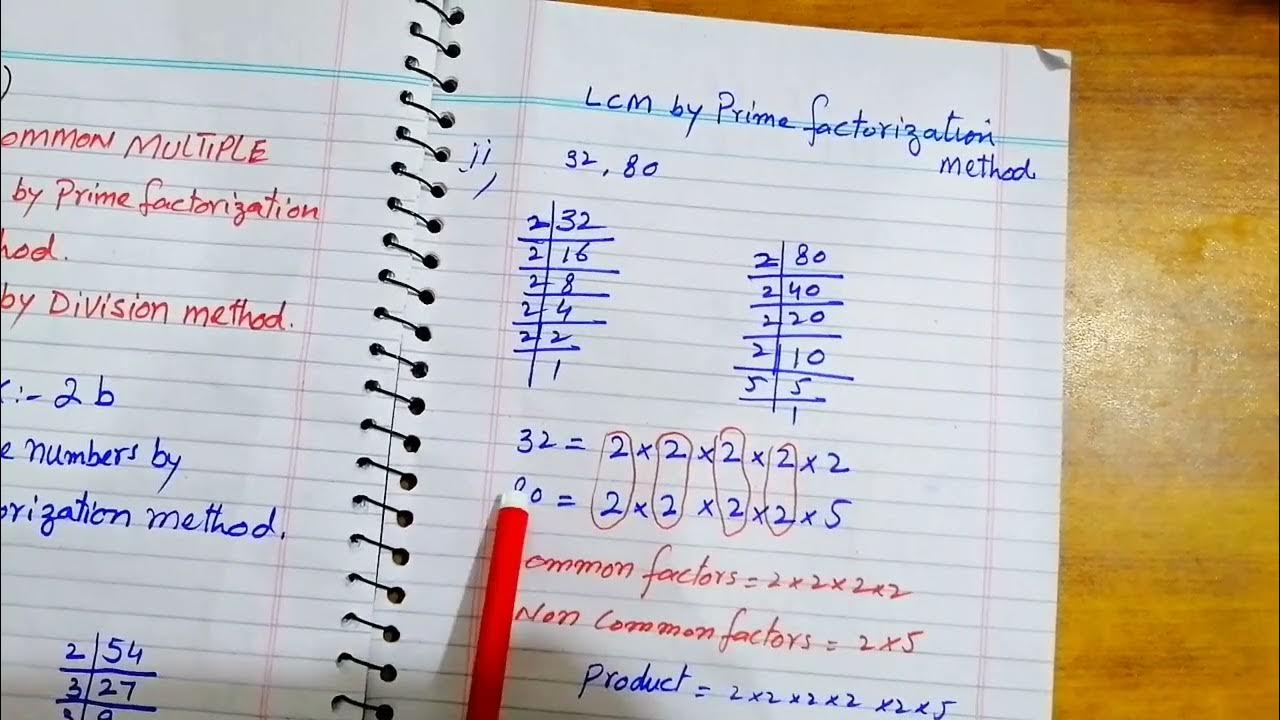 )
OMMON MULTIPLE
by Prime factorization
hod.
by Division method.
:- 2 b
e numbers by
orization method.
2 | 54
3 | 27
LCM by Prime factorization
method.
ii) 32, 80
2 | 32
2 | 16
2 | 8
2 | 4
2 | 2
1
2 | 80
2 | 40
2 | 20
2 | 10
5 | 5
1
32 = 2 × 2 × 2 × 2 × 2
80 = 2 × 2 × 2 × 2 × 5
ommon factors = 2 × 2 × 2 × 2
Non Common factors = 2 × 5
Product = 2 × 2 × 2 × 2 × 2 × 5